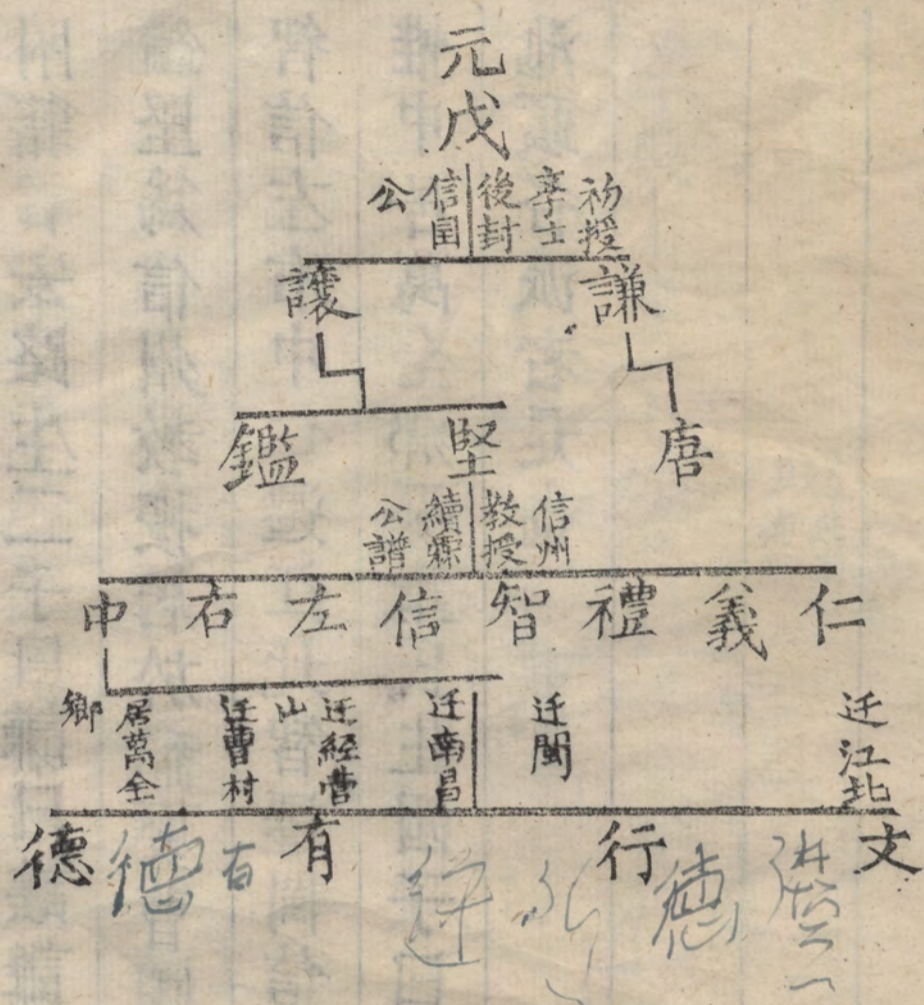 元戊
初授
孝士
後封
信国
公
謙
讓
唐
堅
鑑
信州
教授
續宗
公譜
仁 義 禮 智 信 左 右 中
迁江北
迁閩
迁南昌
迁經營
山
迁曹村
居萬全
鄉
文 行 有 德
德
有
德